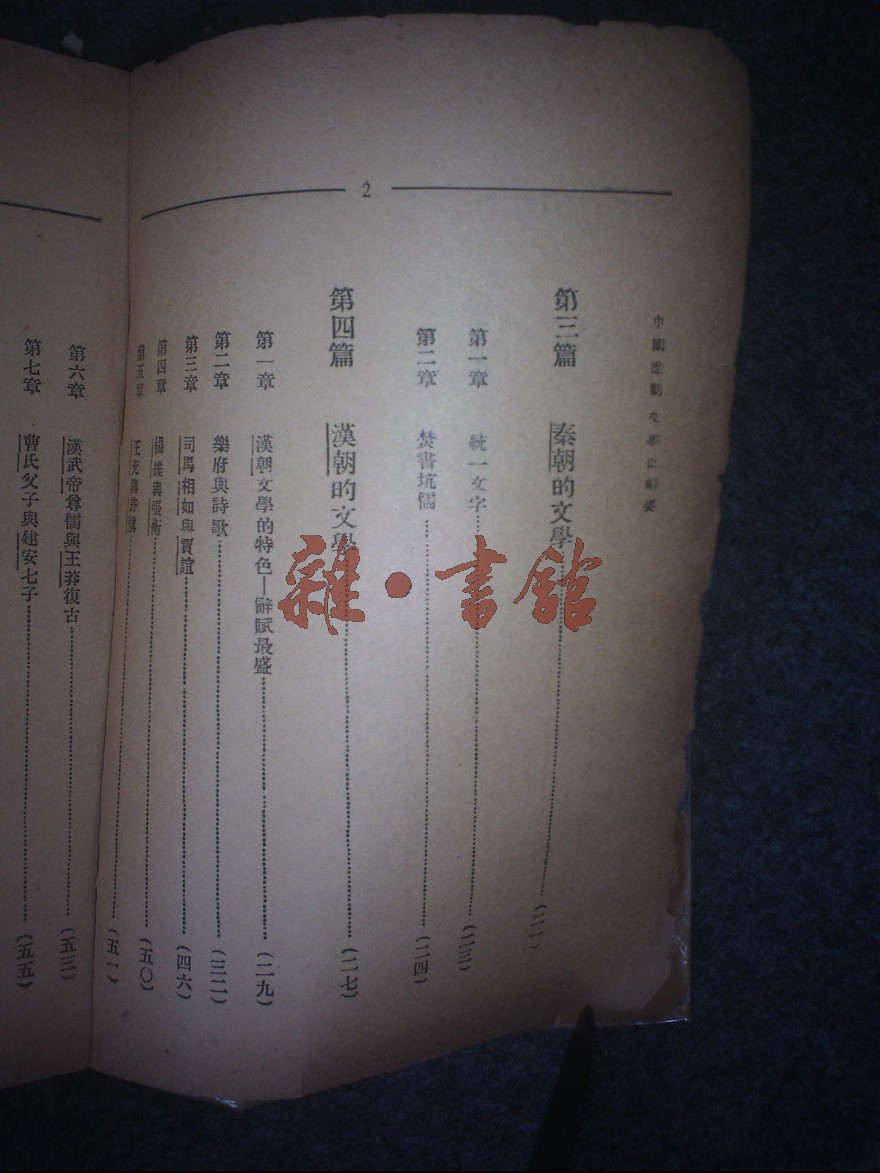 2
中國歷朝文學史綱要
第三篇 秦朝的文學……(二一)
第一章 統一文字……(二三)
第二章 焚書坑儒……(二四)
第四篇 漢朝的文學……(二七)
第一章 漢朝文學的特色—辭賦最盛……(二九)
第二章 樂府與詩歌……(三二)
第三章 司馬相如與賈誼……(四六)
第四章 楊雄與張衡……(五〇)
第五章 王充與許慎……(五一)
第六章 漢武帝尊儒與王莽復古……(五三)
第七章 曹氏父子與建安七子……(五五)
雜·書館